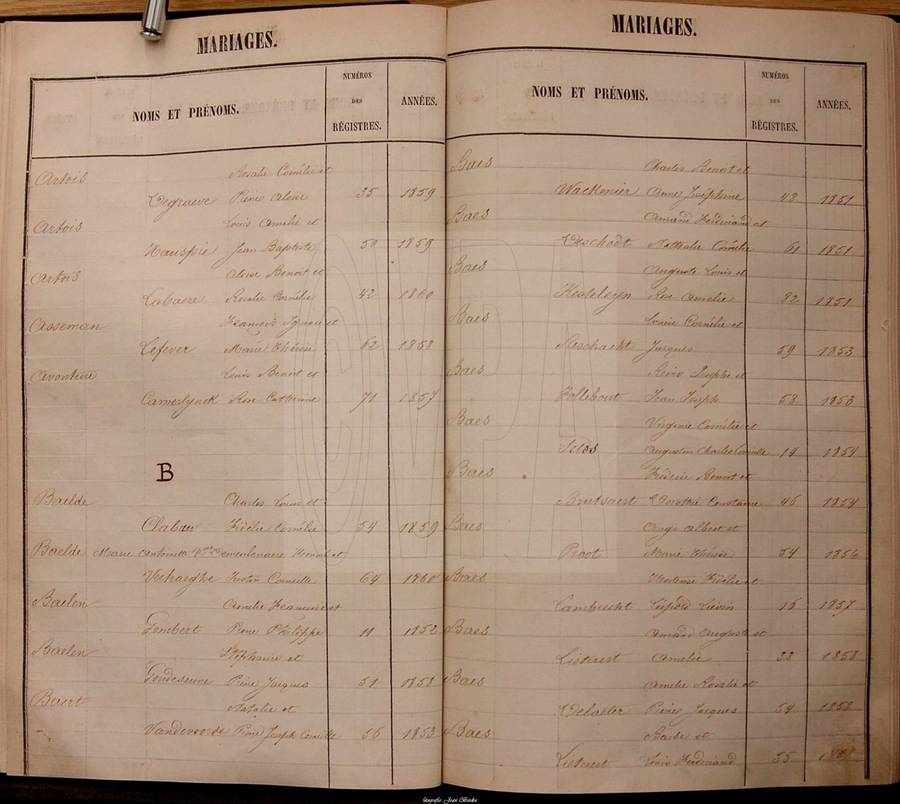 MARIAGES.
NOMS ET PRÉNOMS.
NUMÉROS
DES
RÉGISTRES.
ANNÉES.
Artois Rosalie Cornélie et
Degraeve Pierre Aloise 35 1859
Artois Louis Amelie et
Hauspie Jean Baptiste 50 1859
Artois Aloise Benoit et
Labaere Rosalie Cornélie 42 1860
Asseman François Ignace et
Lefever Marie Thérèse 62 1858
Louis Benoit et
Cameslynck Rose Catherine 71 1857
B
Baelde Charles Louis et
Clabau Fidèle Cornélie 54 1859
Baelde Marie et
Verhaeghe Corneille 64 1860
Baelen Amelie et
Gombert Pierre Philippe 11 1852
Baelen Stéphanie et
Pierre Jacques 51 1858
Baert Natalie et
Vandevoorde Pierre Joseph 56 1853
MARIAGES.
NOMS ET PRÉNOMS.
NUMÉROS
DES
RÉGISTRES.
ANNÉES.
Baes Charles Benoit et
Wackenier Anne Joséphine 43 1851
Baes Amand Ferdinand et
Deschodt Nathalie Cornélie 61 1851
Baes Auguste Louis et
Rose Amelie 82 1851
Baes Cornélie et
Jacques 59 1853
Baes Joseph et
Follebout Jean Joseph 58 1853
Baes Virginie Cornélie et
Augustin Charles 1854
Baes Benoit et
Brutsaert Dorothée Constance 46 1854
Baes Ange Albert et
Proot Marie Thérèse 54 1856
Baes Fidélie et
Lambrecht Léopold 15 1857
Baes Amand Auguste et
Listaert Amelie 33 1858
Baes Amelie Rosalie et
Delaeter Pierre Jacques 54 1858
Baes Barbe et
Listaert Louis Ferdinand 55
CVPA
fotografie Jean Baelde